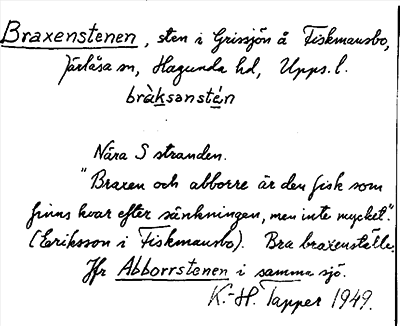 Braxenstenen, sten i Grissjön å Fiskmausbo,
Järlåsa sn, Hagunda hd, Upps. l.
bràksanstén
Nära S stranden.
"Braxen och abborre är den fisk som
finns kvar efter sänkningen, men inte mycket".
(Eeriksson i Fiskmausbo). Bra braxenställe.
Jfr Abborrstenen i samma sjö.
K.-H. Tapper 1949.